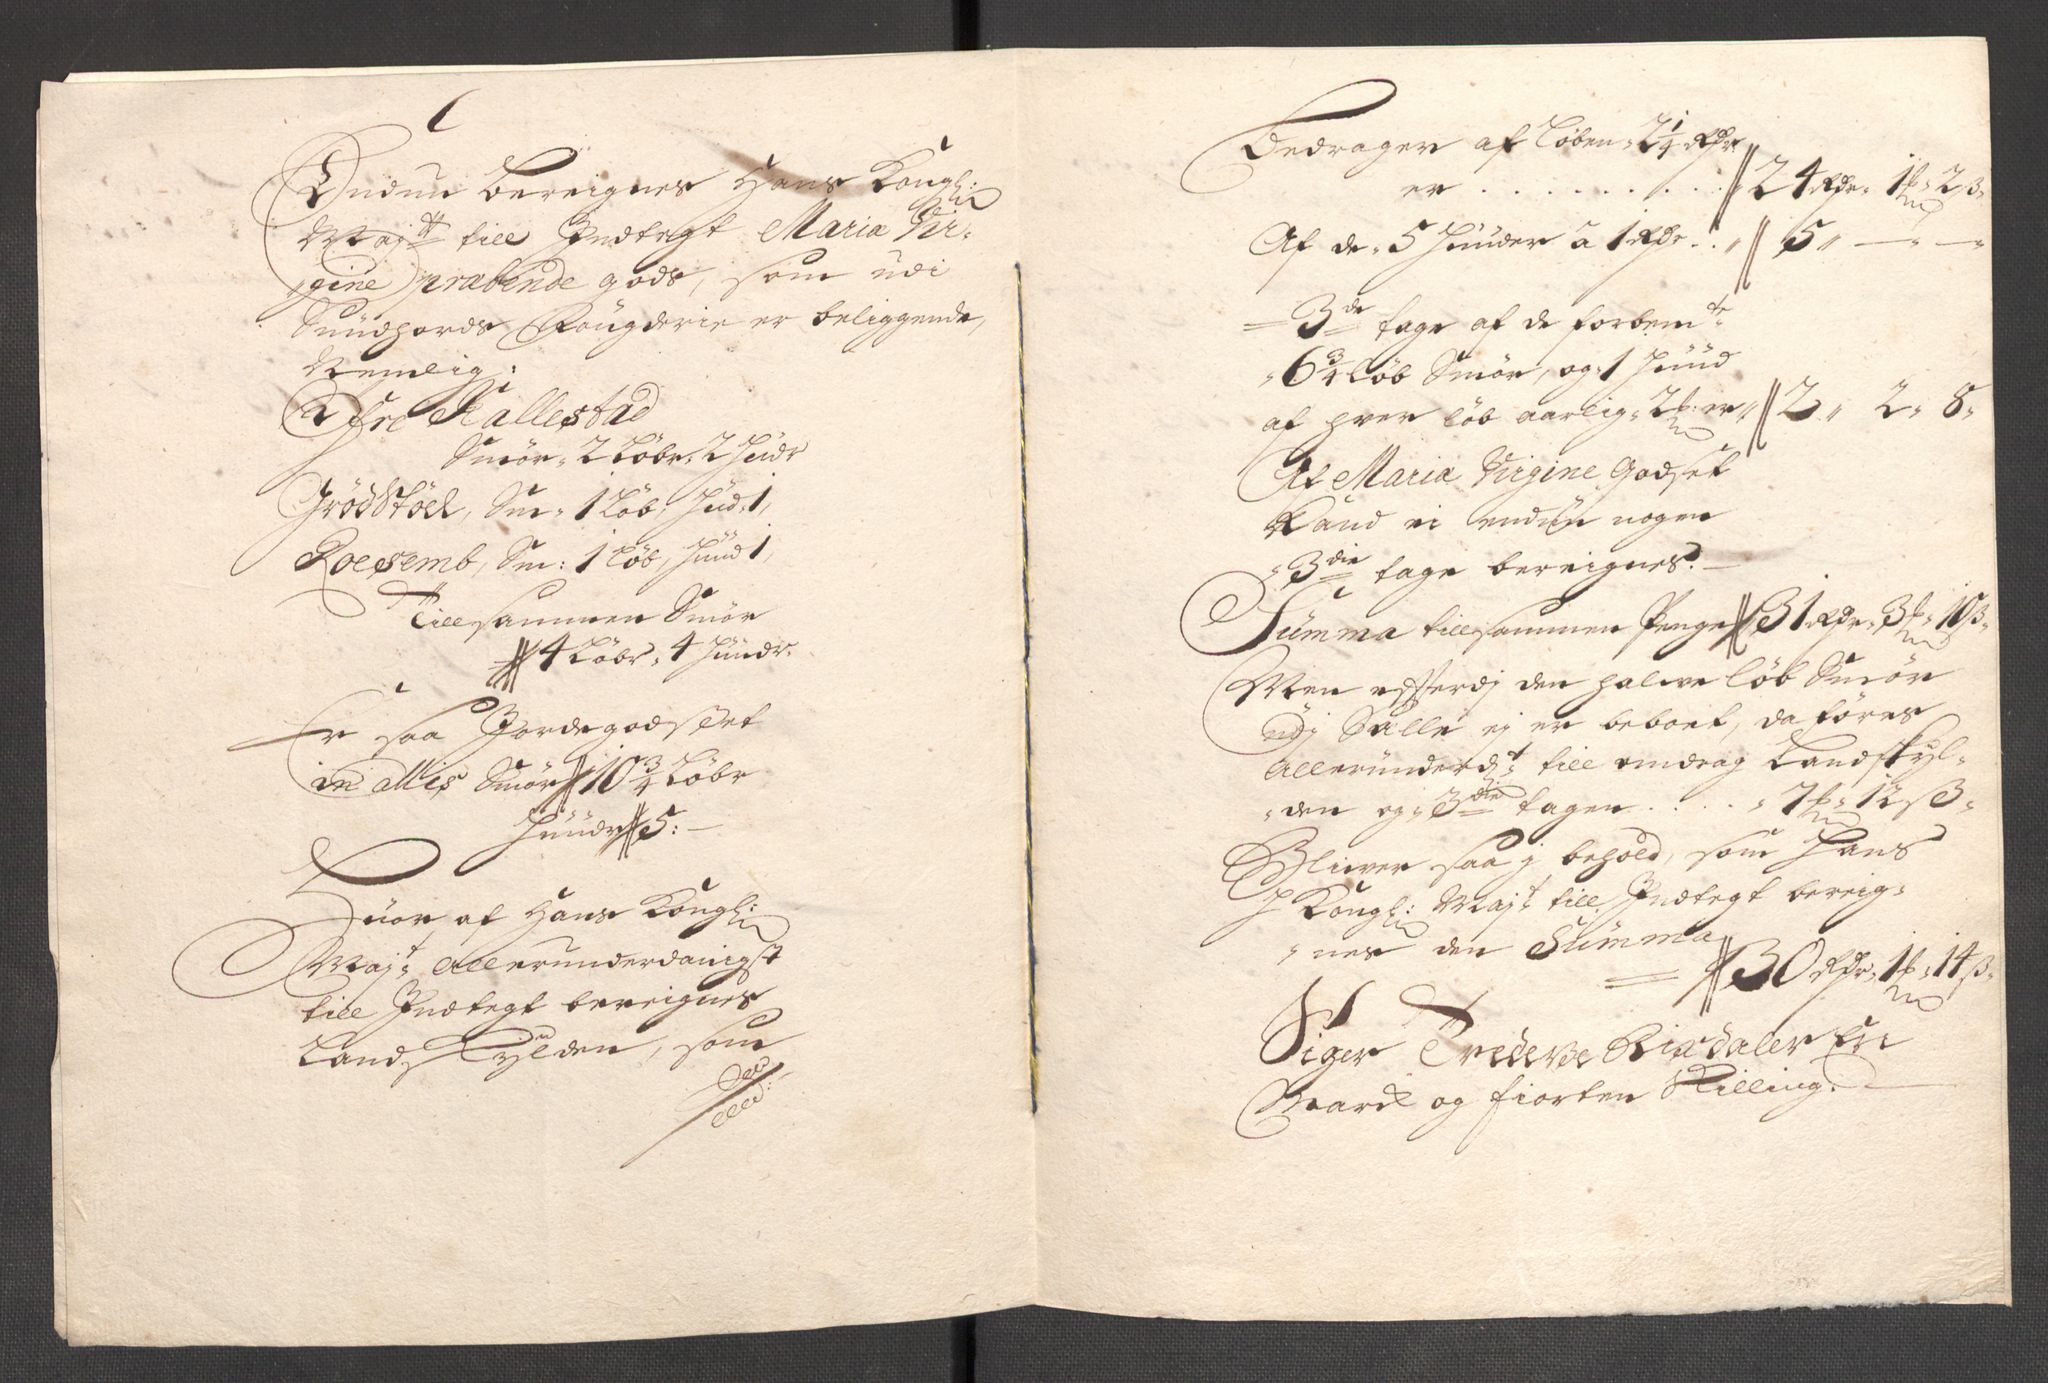 Endnu bereignes Hans Kongl:
Maj:tt till Indtegt Mariæ Vir-
gine præbende gods, som udi
Sundfiords Fougderie er beliggende,
Nemlig:
Kallestad
Smör 2 Löbr 2 Hudr
Grödstöel, Sm: 1 Löb, Hud: 1,
Roesemb, Sm: 1 Löb, Huud 1,
Till sammen Smör
4 Löbr 4 Huudr
Er saa Jordegodsset
in allis Smör 10 3/4 Löbr
Huudr 5:
Huor af Hans Kongl:
Maj:t allerunderdanigst
till Indtegt bereignes
Landskylden, som
Bedrager af Löben 2 1/4 Rdr
er . . . . . . . . . 24 Rdr 1 ℔ 2 ß
Af de 5 Huder a 1 Rdr . . 5 — —
3de tage af de forbem:te
6 3/4 Löb Smör, og 1 Huud
af hver Löb aarlig 2 ℔: er 2 2 8
Af Maria Virgine Godset
Kand ei endun nogen
3die tage bereignes.
Summa tillsammen Penge 31 Rdr 3 ℔ 10 ß
Men efftersdj den halve Löb Smör
udj Salle ej er beboet, da föres
allerunderd:t till omdrag Landskyl-
den og 3die tagen . . . . 7 ℔ 12 ß
Bliwer saa j behold, som Hans
Kongl: Maj:t till Indtegt bereig-
nes den Summa
30 Rdr 1 ℔ 14 ß
Siger Tredeve Rixdaler En
Mark og fiorten Skilling.